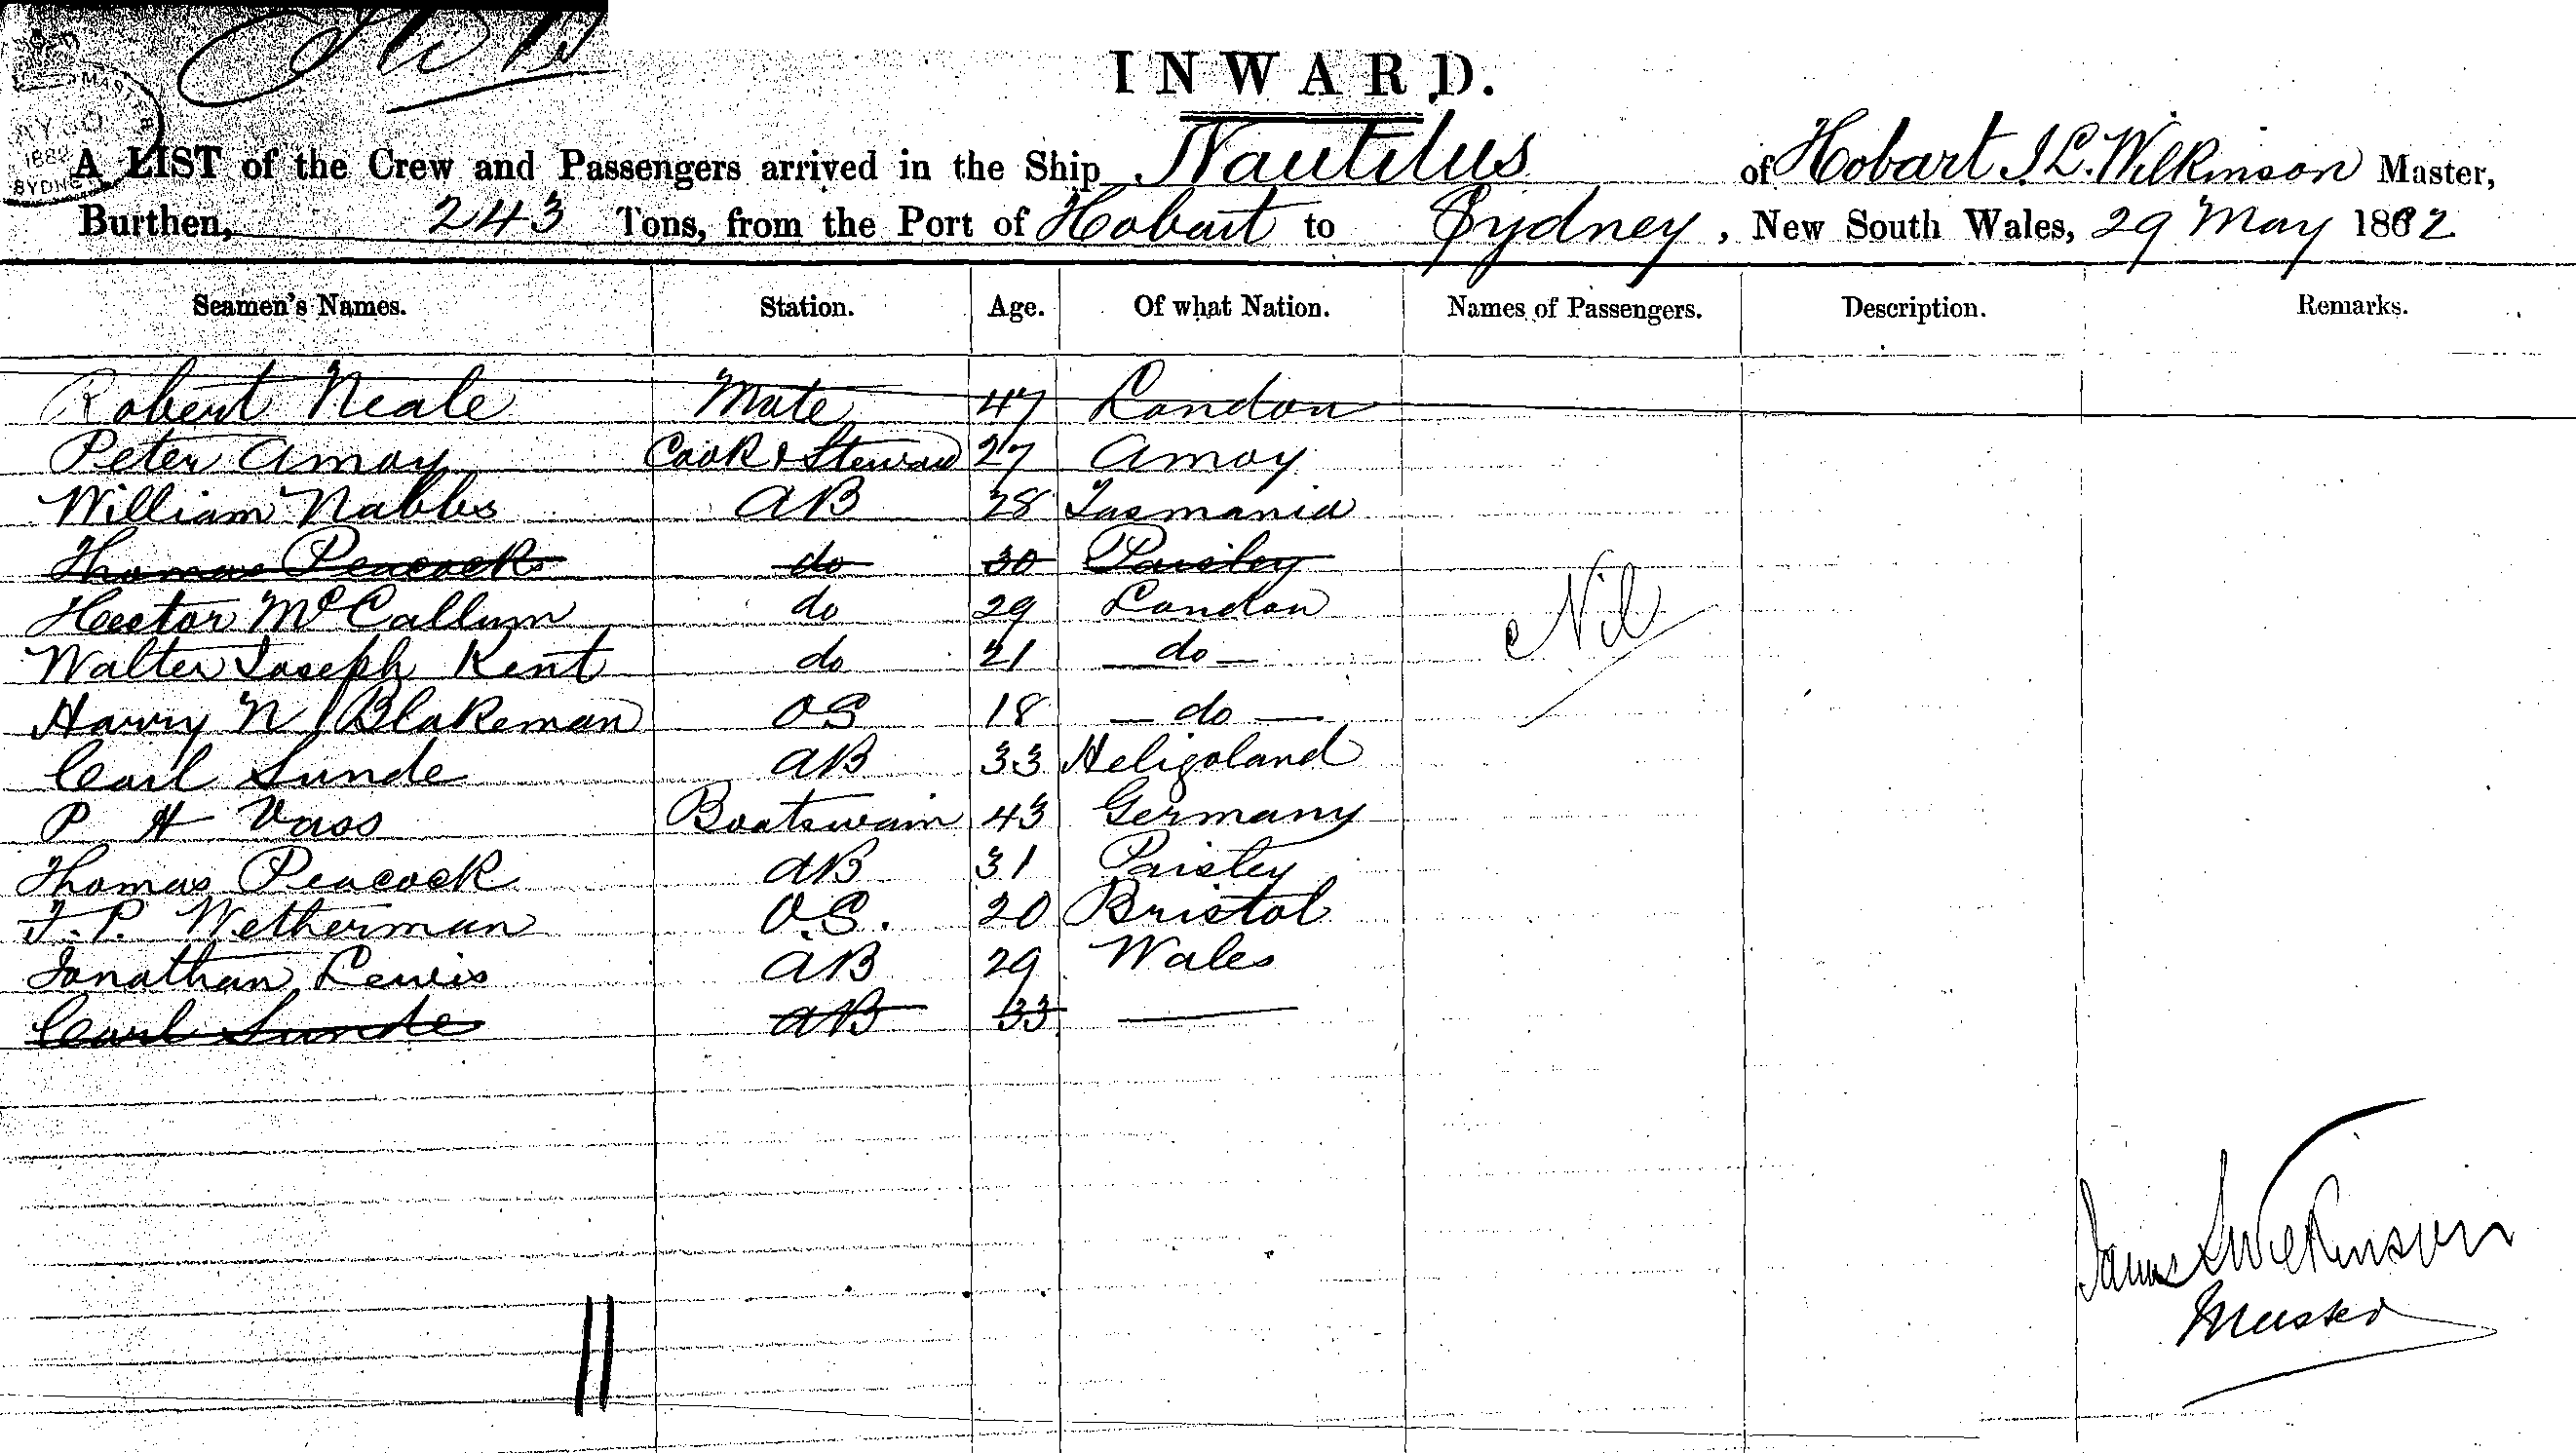 INWARD.
A LIST of the Crew and Passengers arrived in the Ship Nautilus of Hobart J L. Wilkinson Master,
Burthen, 243 Tons, from the Port of Hobart to Sydney, New South Wales, 29 May 1882
Seamen's Names. Station. Age. Of what Nation. Names of Passengers. Description. Remarks.
Robert Neale Mate 47 London
Peter Amoy Cook & Steward 27 Amoy
William Nabbs AB 28 Tasmania
Thomas Peacock do 30 Paisley
Hector McCallum do 29 London
Nil
Walter Joseph Kent do 21 — do —
Harry N Blakeman OS 18 — do —
Carl Sunde AB 33 Heligoland
P H Vass Boatswain 43 Germany
Thomas Peacock AB 31 Paisley
J. P. Wetherman O.S. 20 Bristol
Jonathan Lewis AB 29 Wales
Carl Sunde AB 33 —
James L Wilkinson
Master
11